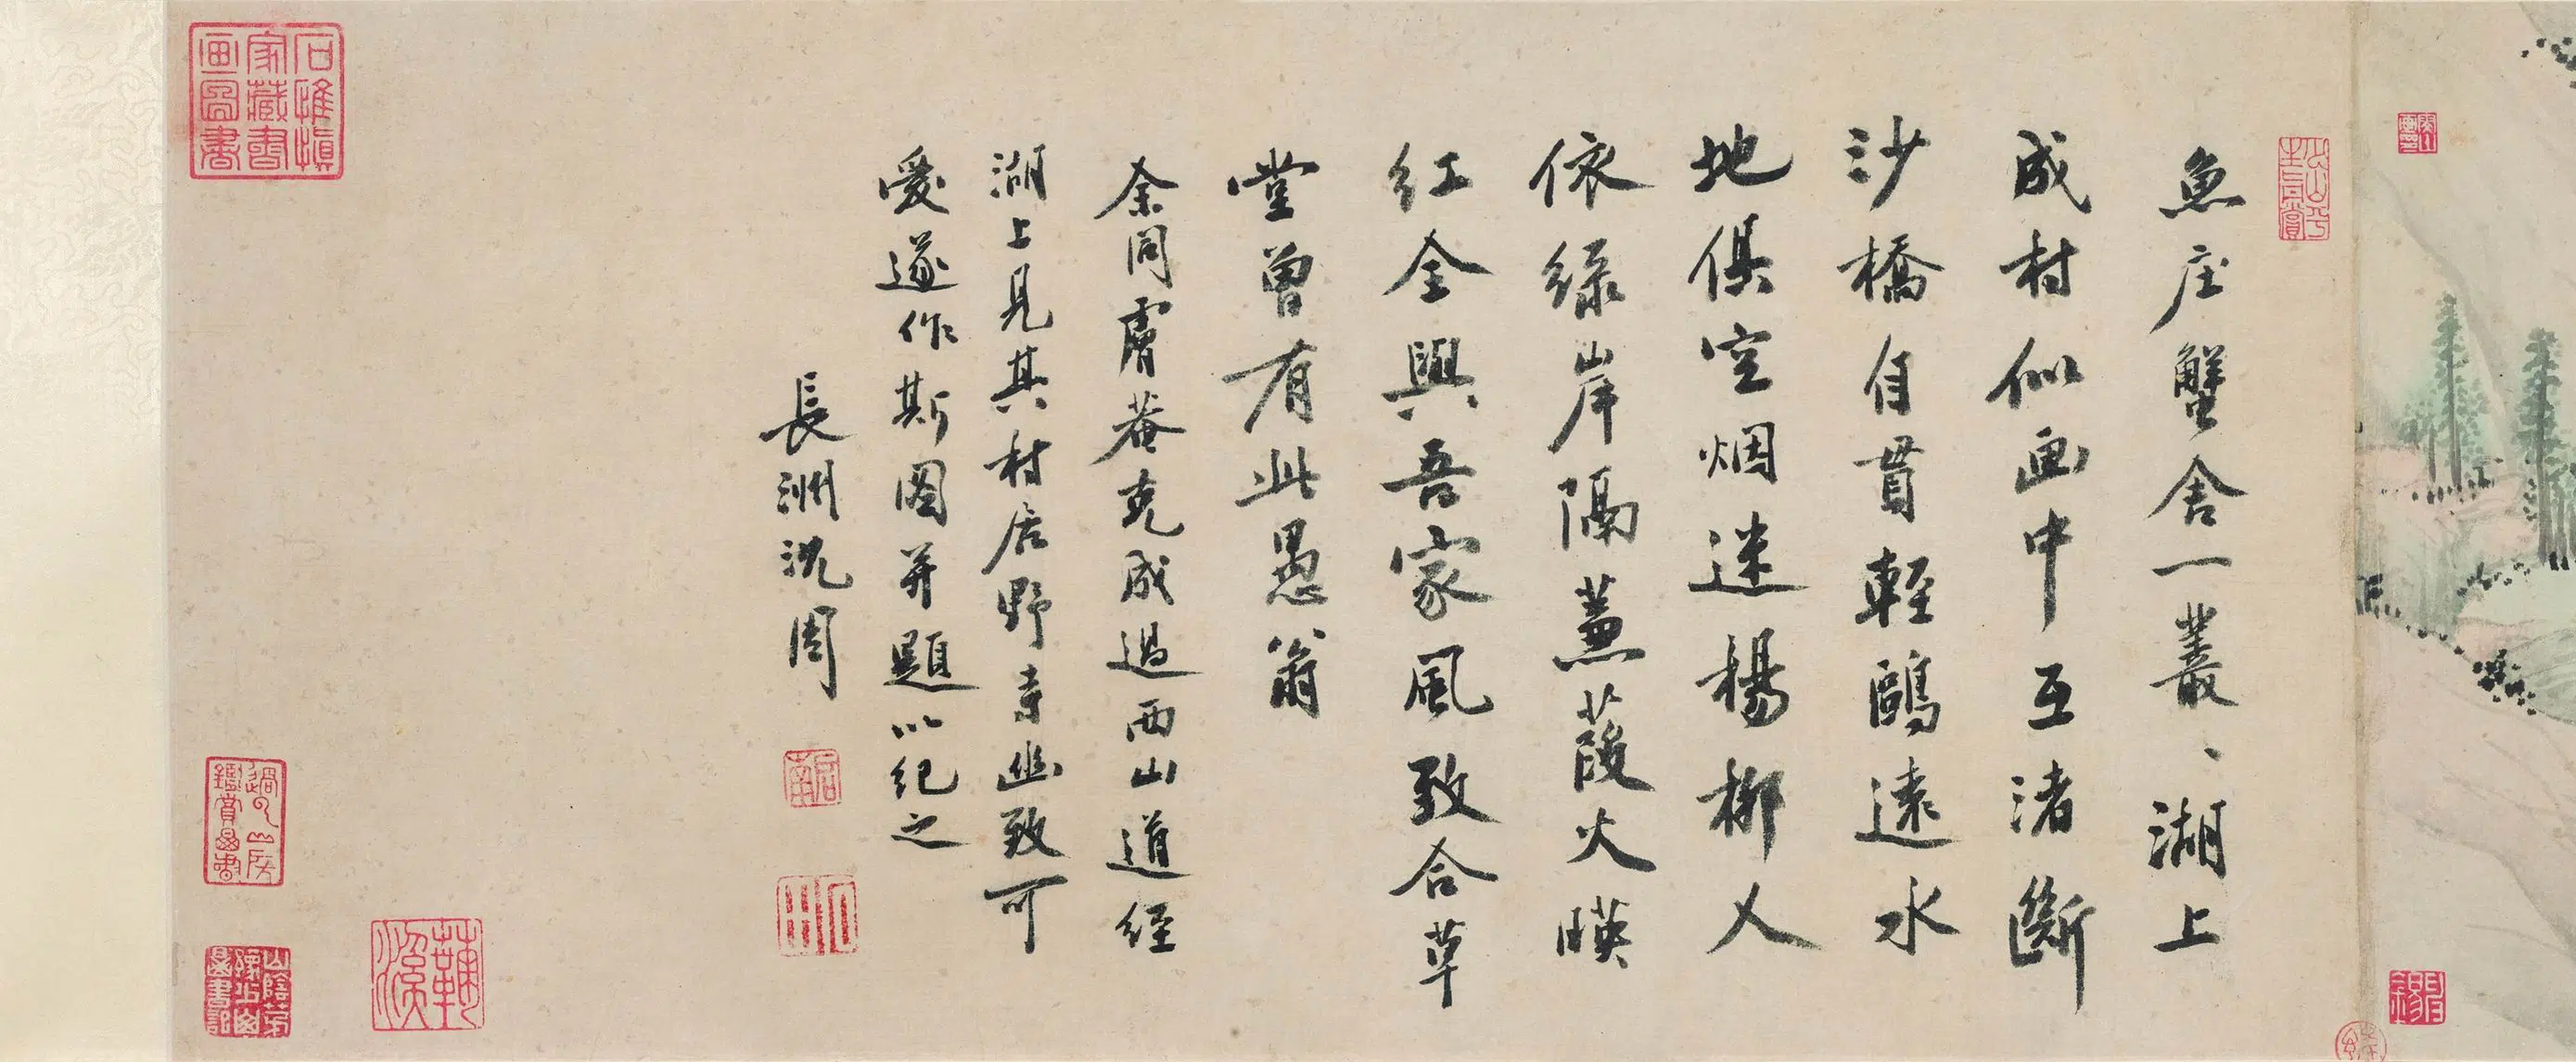 魚庄蟹舍一叢、湖上
成村似画中互渚斷
沙橋自貫輕鷗遠水
地俱空烟迷楊柳人
依綠岸隔蒹葭火暎
红全與吾家風致合草
堂曾有此愚翁
余同膚菴克成過西山道經
湖上見其村居野寺幽致可
愛遂作斯图并題以纪之
長洲沈周
石雄慎家藏書画圖書
啓南